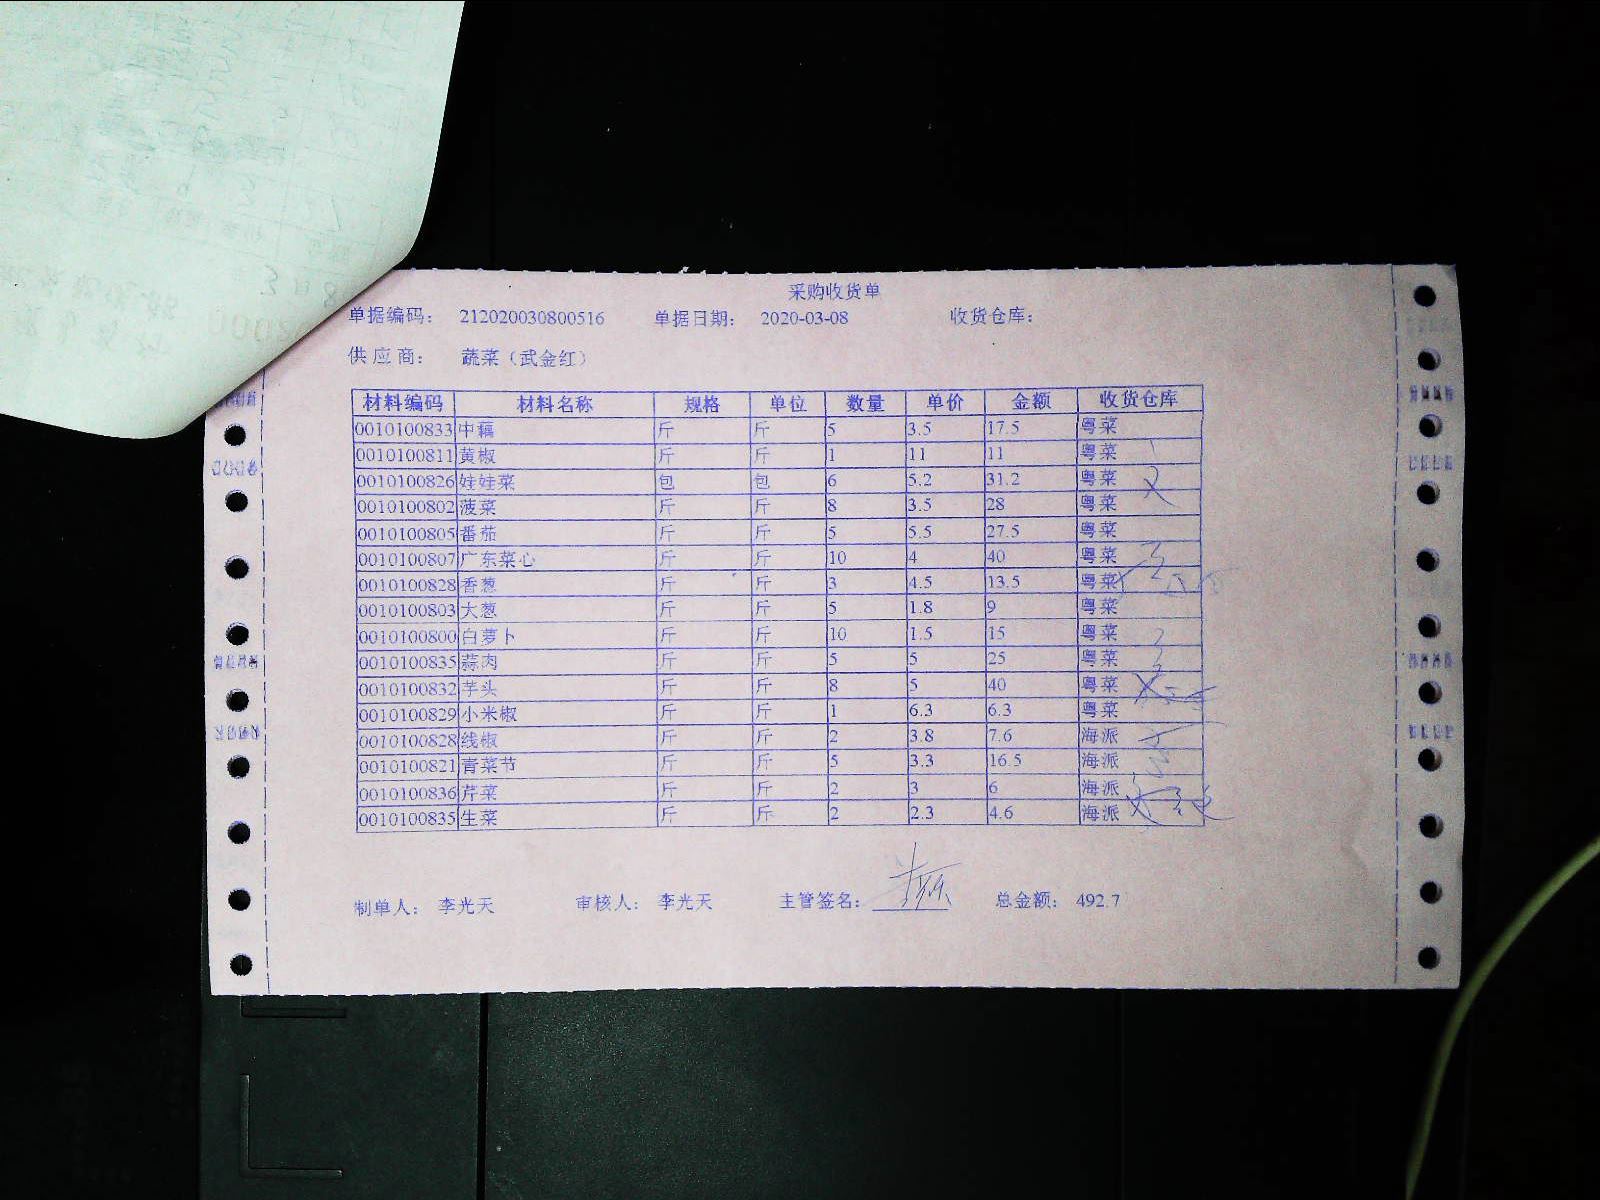 采购收货单
单据编码： 212020030800516 单据日期： 2020-03-08 收货仓库：
供应商： 蔬菜（武金红）
材料编码 材料名称 规格 单位 数量 单价 金额 收货仓库
0010100833 中藕 斤 斤 5 3.5 17.5 粤菜
0010100811 黄椒 斤 斤 1 11 11 粤菜
0010100826 娃娃菜 包 包 6 5.2 31.2 粤菜
0010100802 菠菜 斤 斤 8 3.5 28 粤菜
0010100805 番茄 斤 斤 5 5.5 27.5 粤菜
0010100807 广东菜心 斤 斤 10 4 40 粤菜
0010100828 香葱 斤 斤 3 4.5 13.5 粤菜
0010100803 大葱 斤 斤 5 1.8 9 粤菜
0010100800 白萝卜 斤 斤 10 1.5 15 粤菜
0010100835 蒜肉 斤 斤 5 5 25 粤菜
0010100832 芋头 斤 斤 8 5 40 粤菜
0010100829 小米椒 斤 斤 1 6.3 6.3 粤菜
0010100828 线椒 斤 斤 2 3.8 7.6 海派
0010100821 青菜节 斤 斤 5 3.3 16.5 海派
0010100836 芹菜 斤 斤 2 3 6 海派
0010100835 生菜 斤 斤 2 2.3 4.6 海派
制单人： 李光天 审核人： 李光天 主管签名： 总金额： 492.7